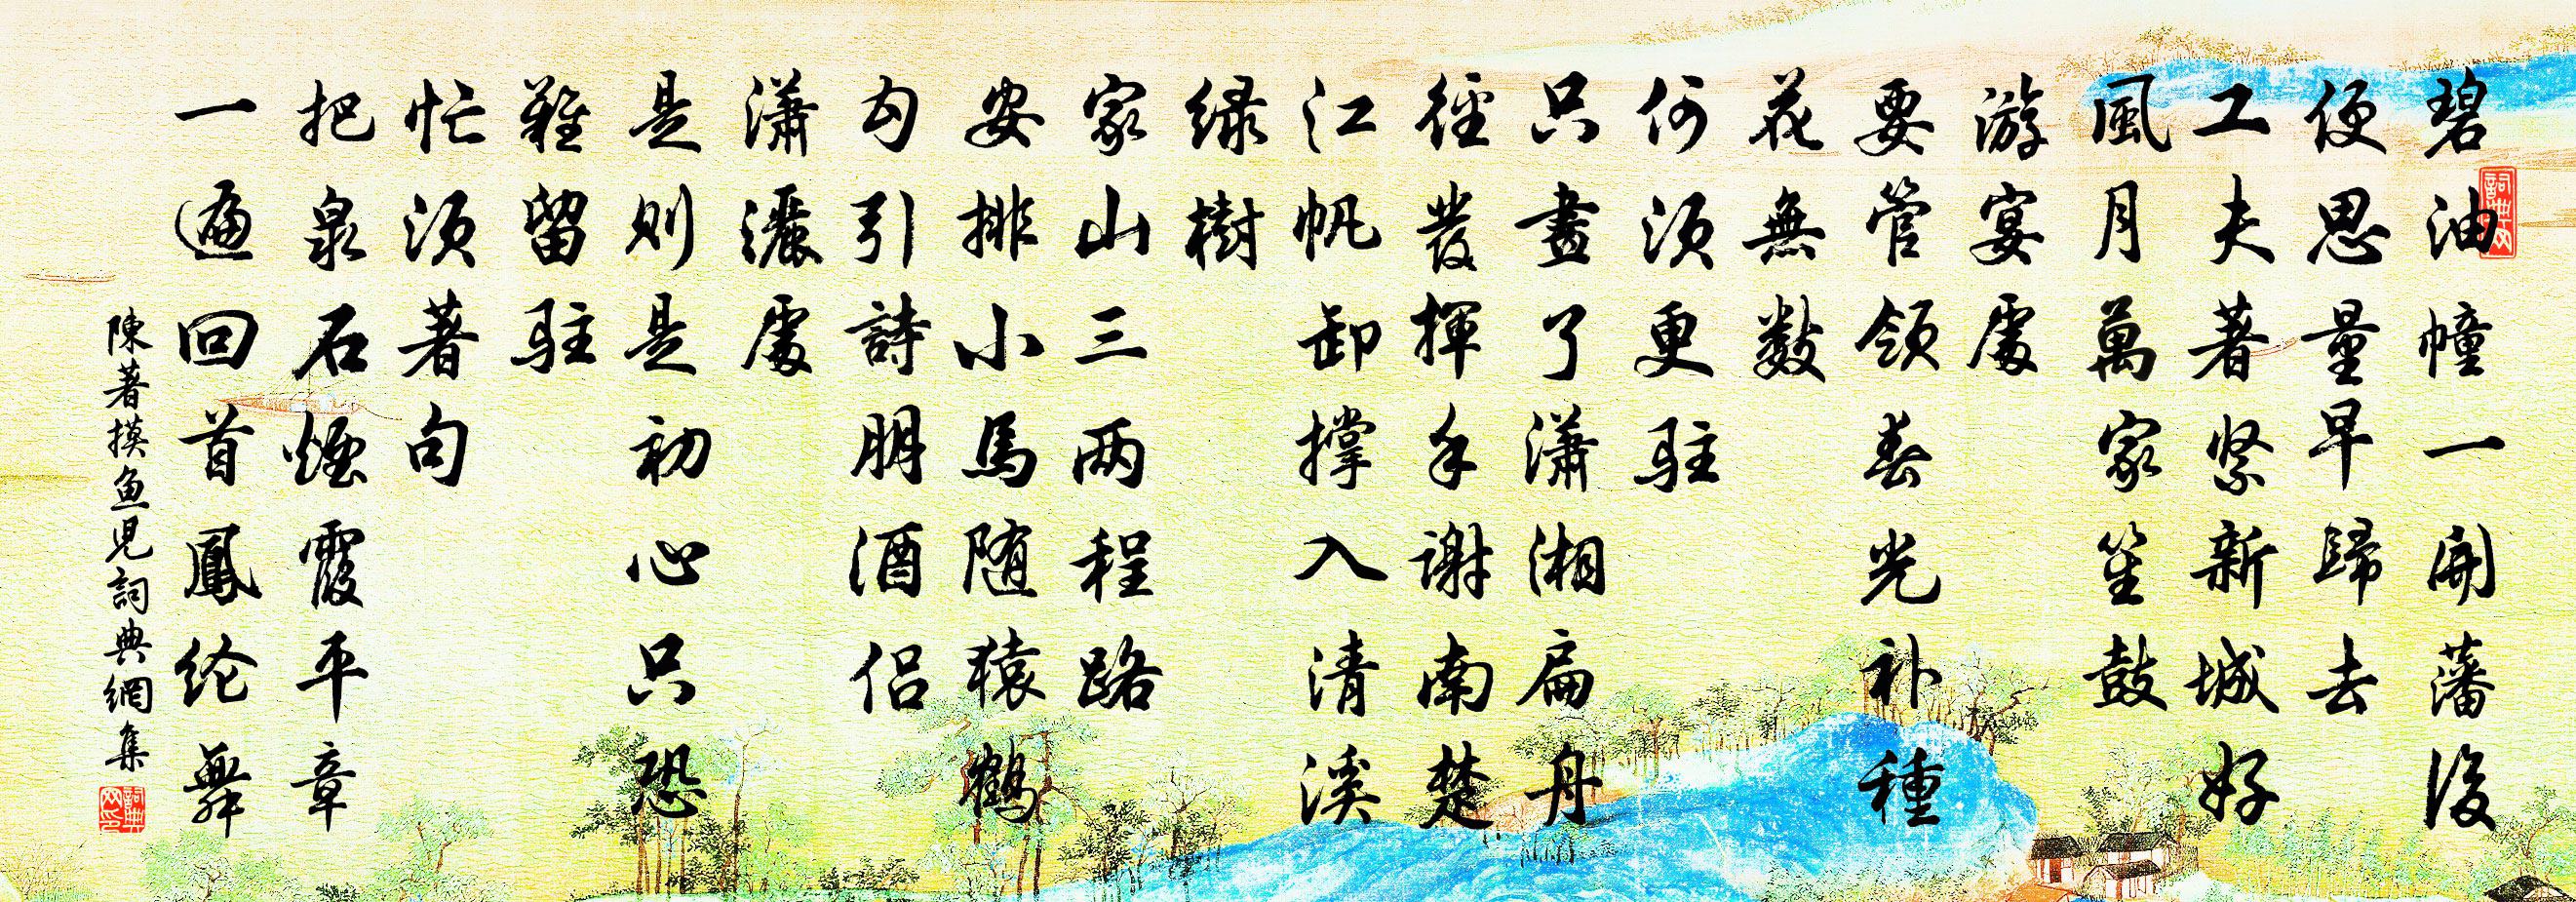 碧油幢一開藩後
便思量早歸去
工夫著紧新城好
風月萬家笙鼓
游宴處
要管領春光補種
花無數
何須更駐
只畫了瀟湘扁舟
徑發揮手謝南楚
江帆卸撐入清溪
绿樹
家山三两程路
安排小馬随猿鶴
勾引詩朋酒侣
瀟灑處
是則是初心只恐
難留駐
忙須著句
把泉石煙霞平章
一遍回首鳳纶舞
陳著摸鱼児詞典網集
詞典网
詞典网印